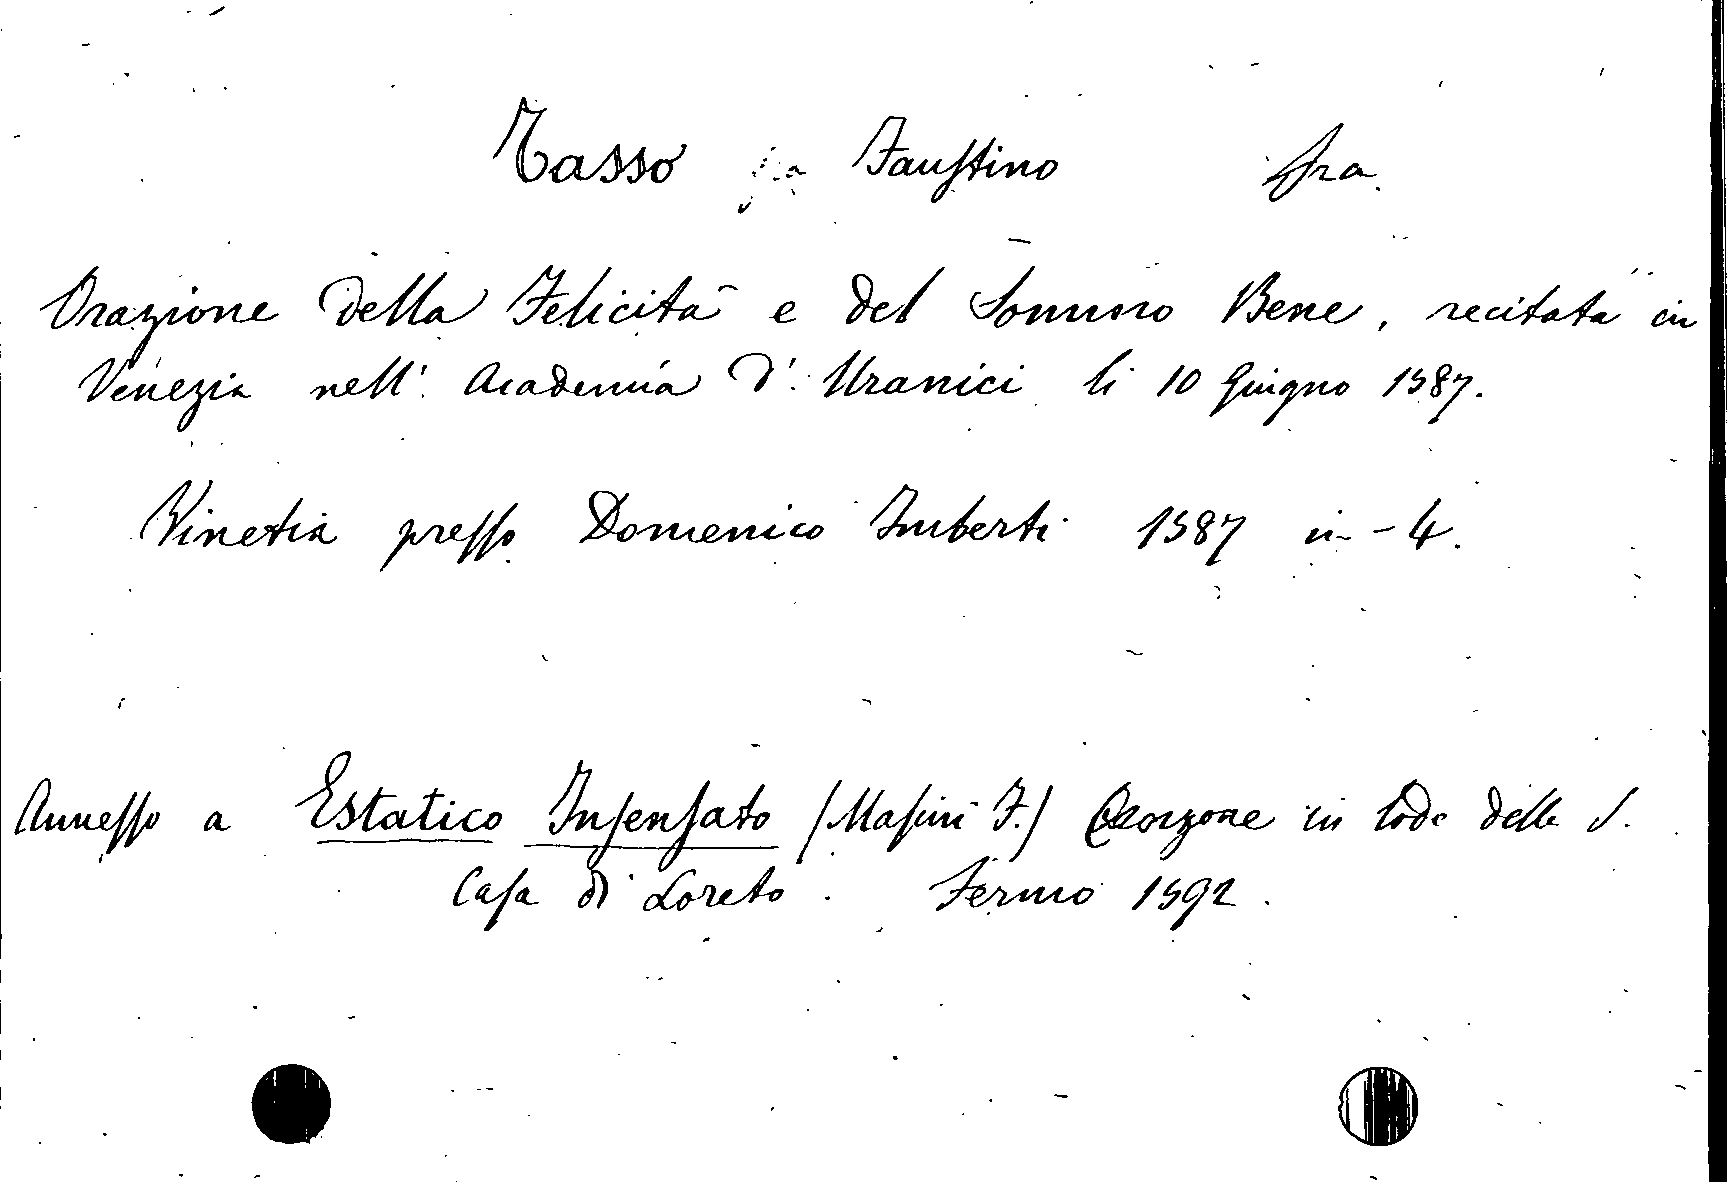 Tasso Faustino fra
Orazione della Felicità e del Sommo Bene, recitata in
Venezia nell' Academia d' Uranici li 10 Giugno 1587.
Vinetia presso Domenico Imberti 1587 in-4.
Annesso a Estatico Insensato (Masini F.) in lode della S.
Casa di Loreto. Fermo 1592.